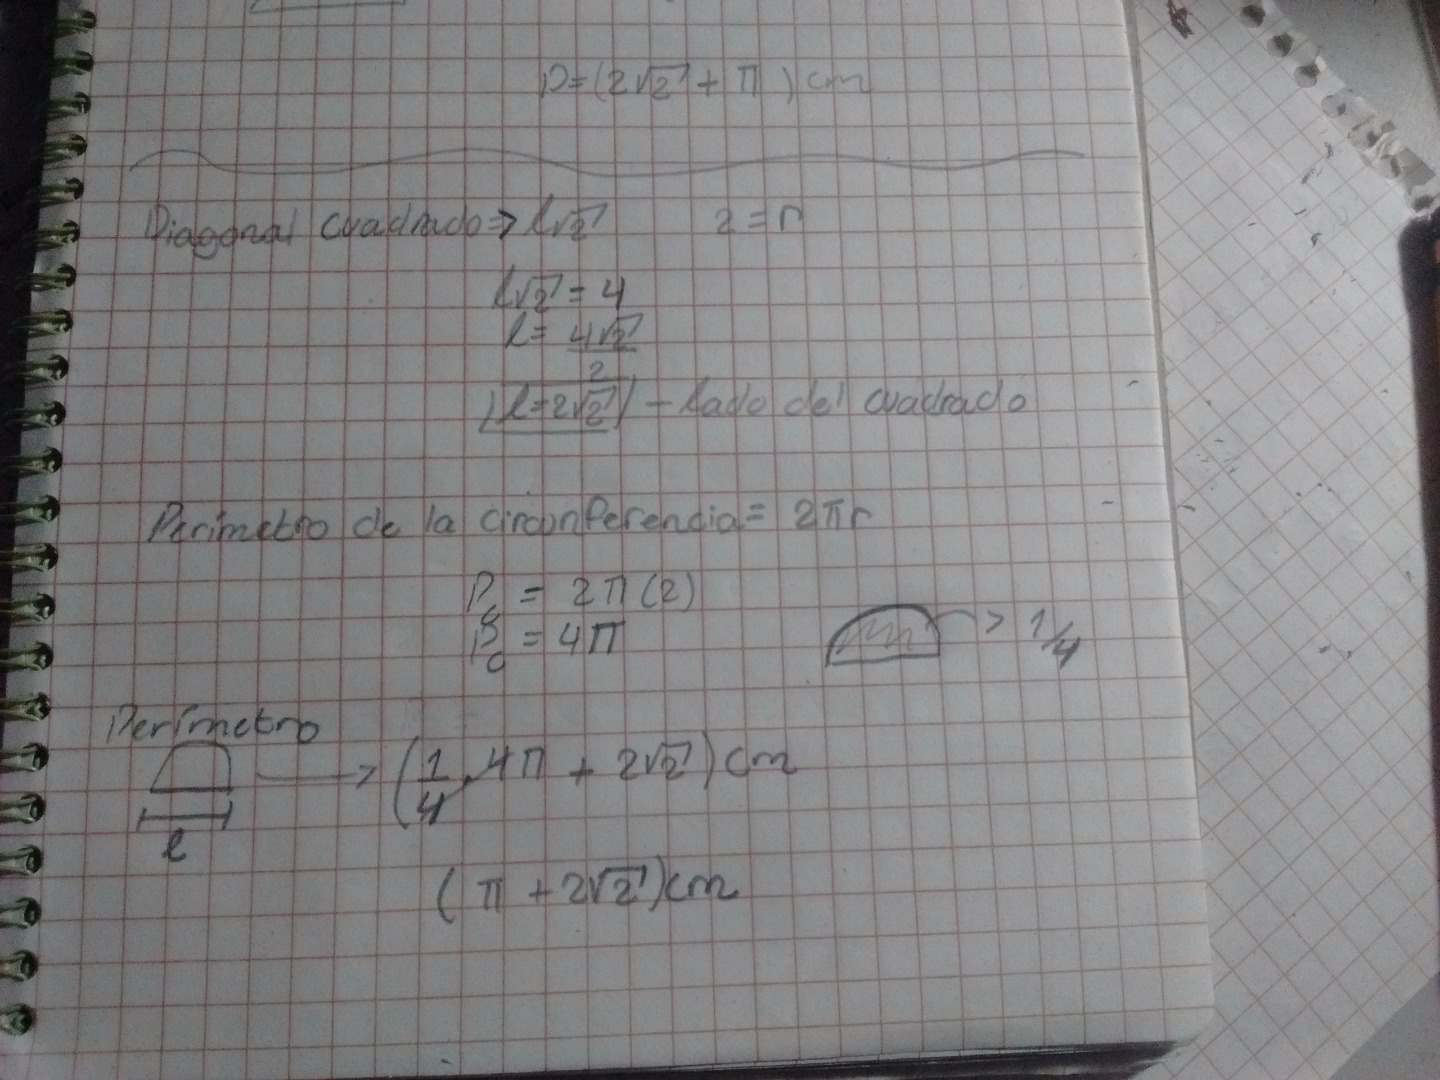 P=(2√2 + π) cm
Diagonal cuadrado⇒ l√2 2=r
l√2 = 4
l= 4√2
2
l=2√2 - lado del cuadrado
Perímetro de la circunferencia= 2πr
Pc = 2π(2)
Pc = 4π
> 1/4
Perímetro
→ (1/4 · 4π + 2√2) cm
l
(π + 2√2) cm